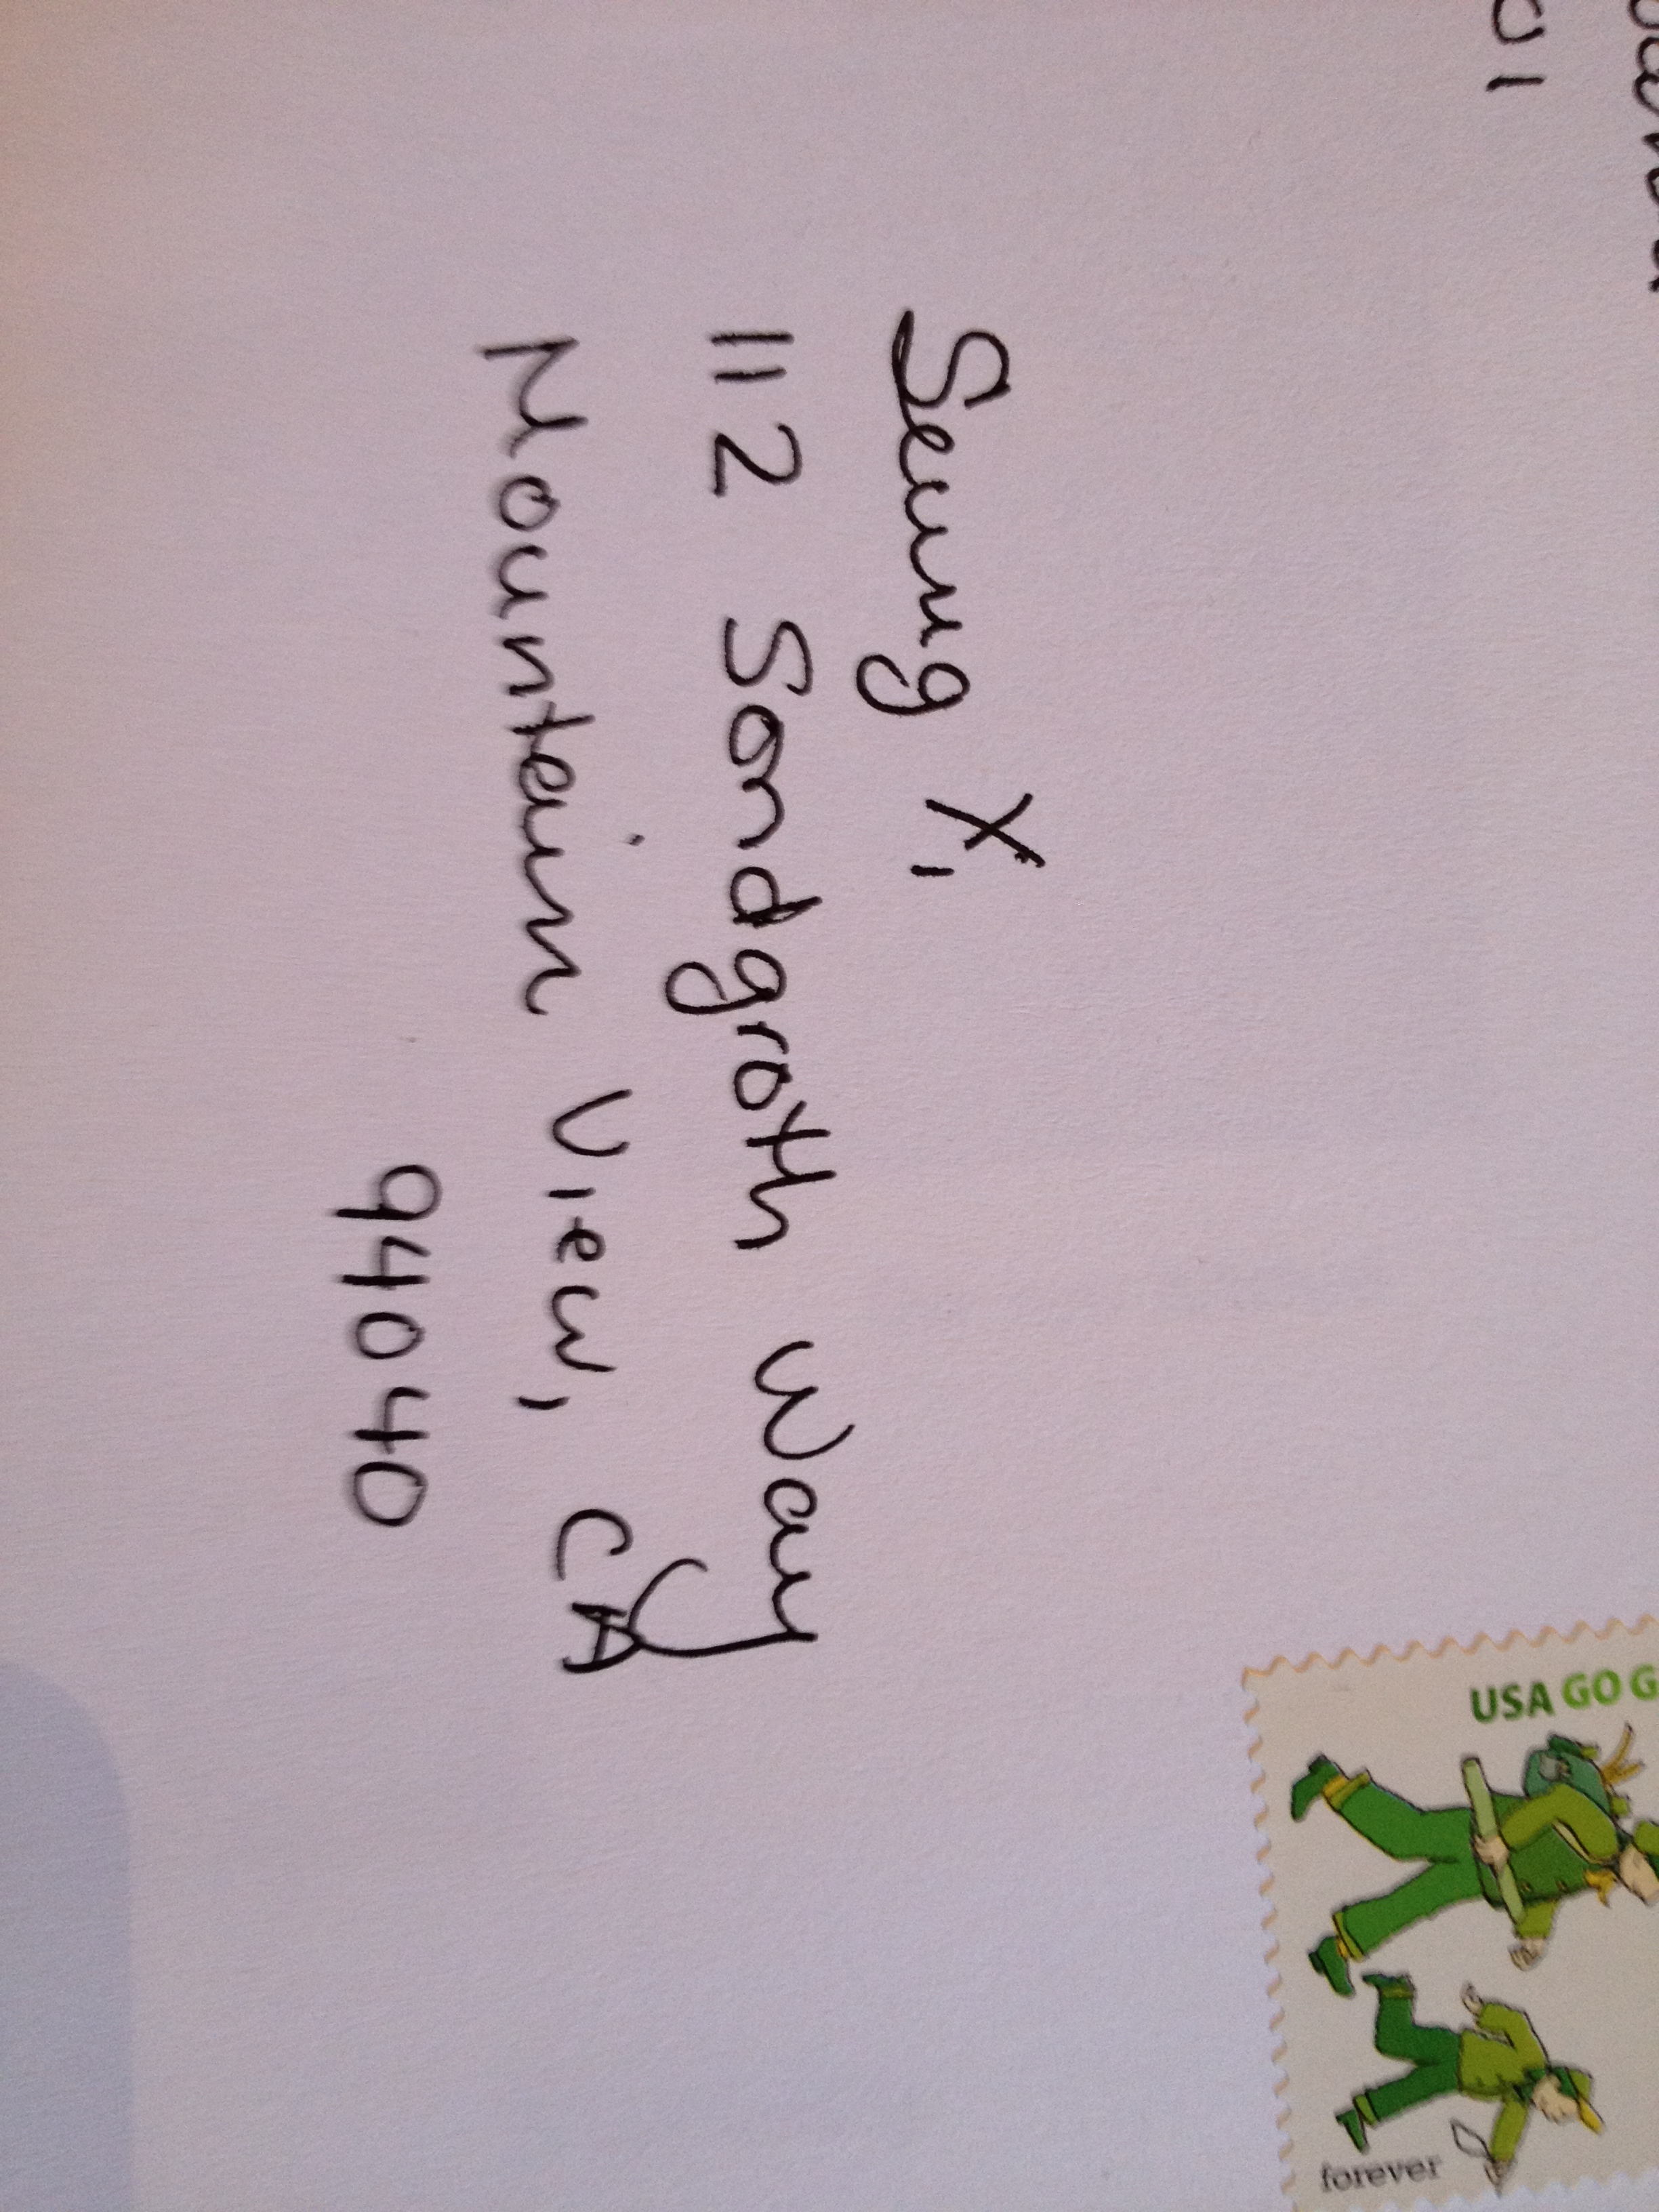 01
Seung X,
112 Sondgroth Way
Mountain View, CA
94040
USA GO G
forever